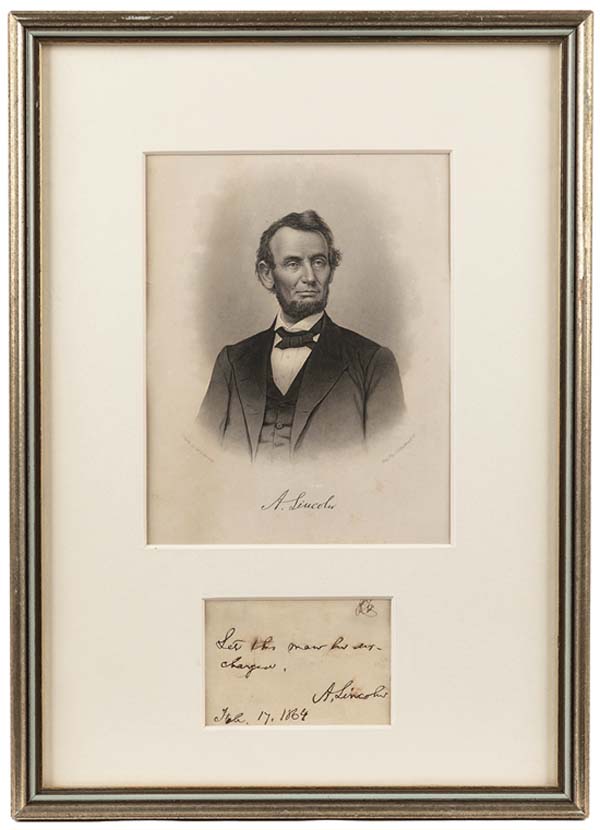 A. Lincoln
Let this man be dis-
charged.
A. Lincoln
Feb. 17, 1864